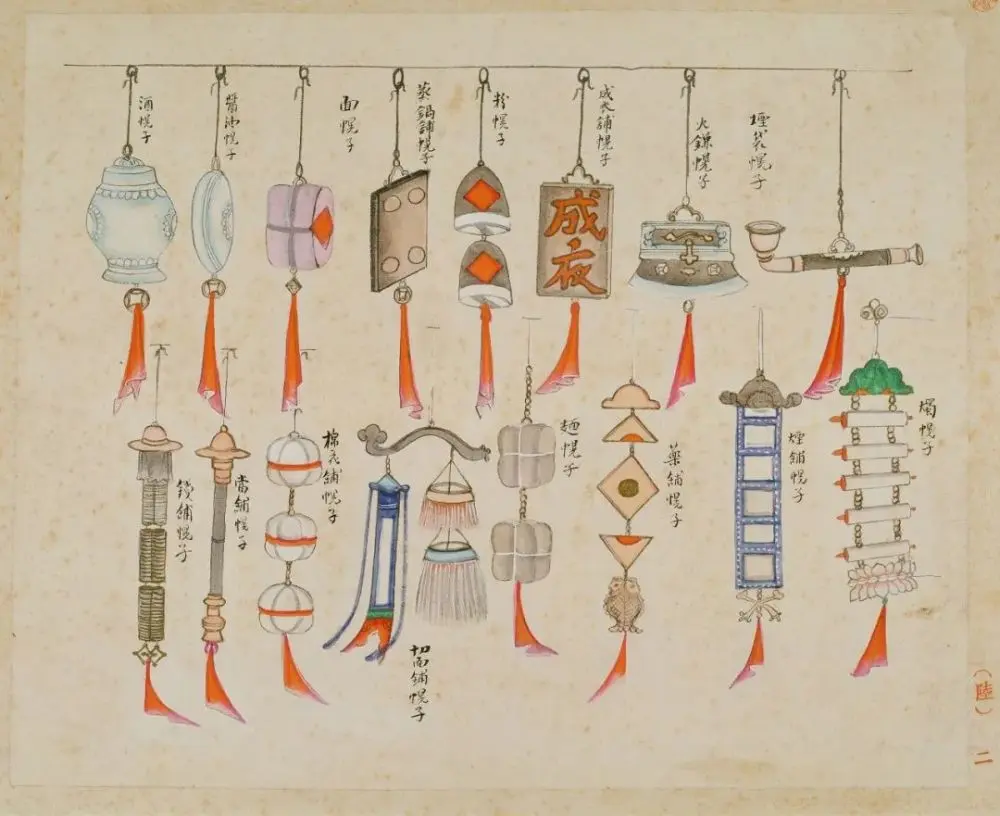 酒幌子
醬油幌子
面幌子
蒸鍋鋪幌子
粉幌子
成衣鋪幌子
成夜
火鐮幌子
煙袋幌子
錢鋪幌子
當鋪幌子
棉衣鋪幌子
切面鋪幌子
幌子
藥鋪幌子
煙鋪幌子
燭幌子
(陸)二